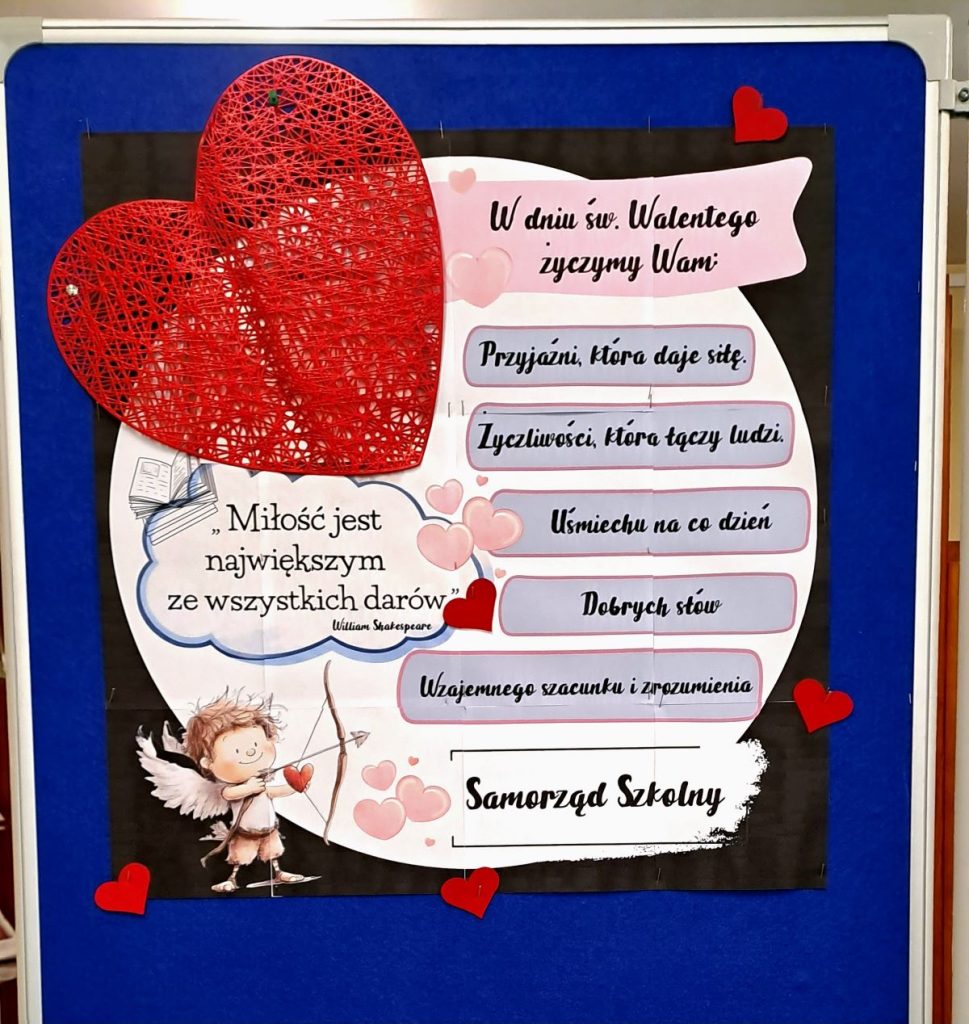 W dniu św. Walentego
życzymy Wam:
Przyjaźni, która daje siłę.
Życzliwości, która łączy ludzi.
Uśmiechu na co dzień
Dobrych słów
Wzajemnego szacunku i zrozumienia
„ Miłość jest
największym
ze wszystkich darów”
William Shakespeare
Samorząd Szkolny